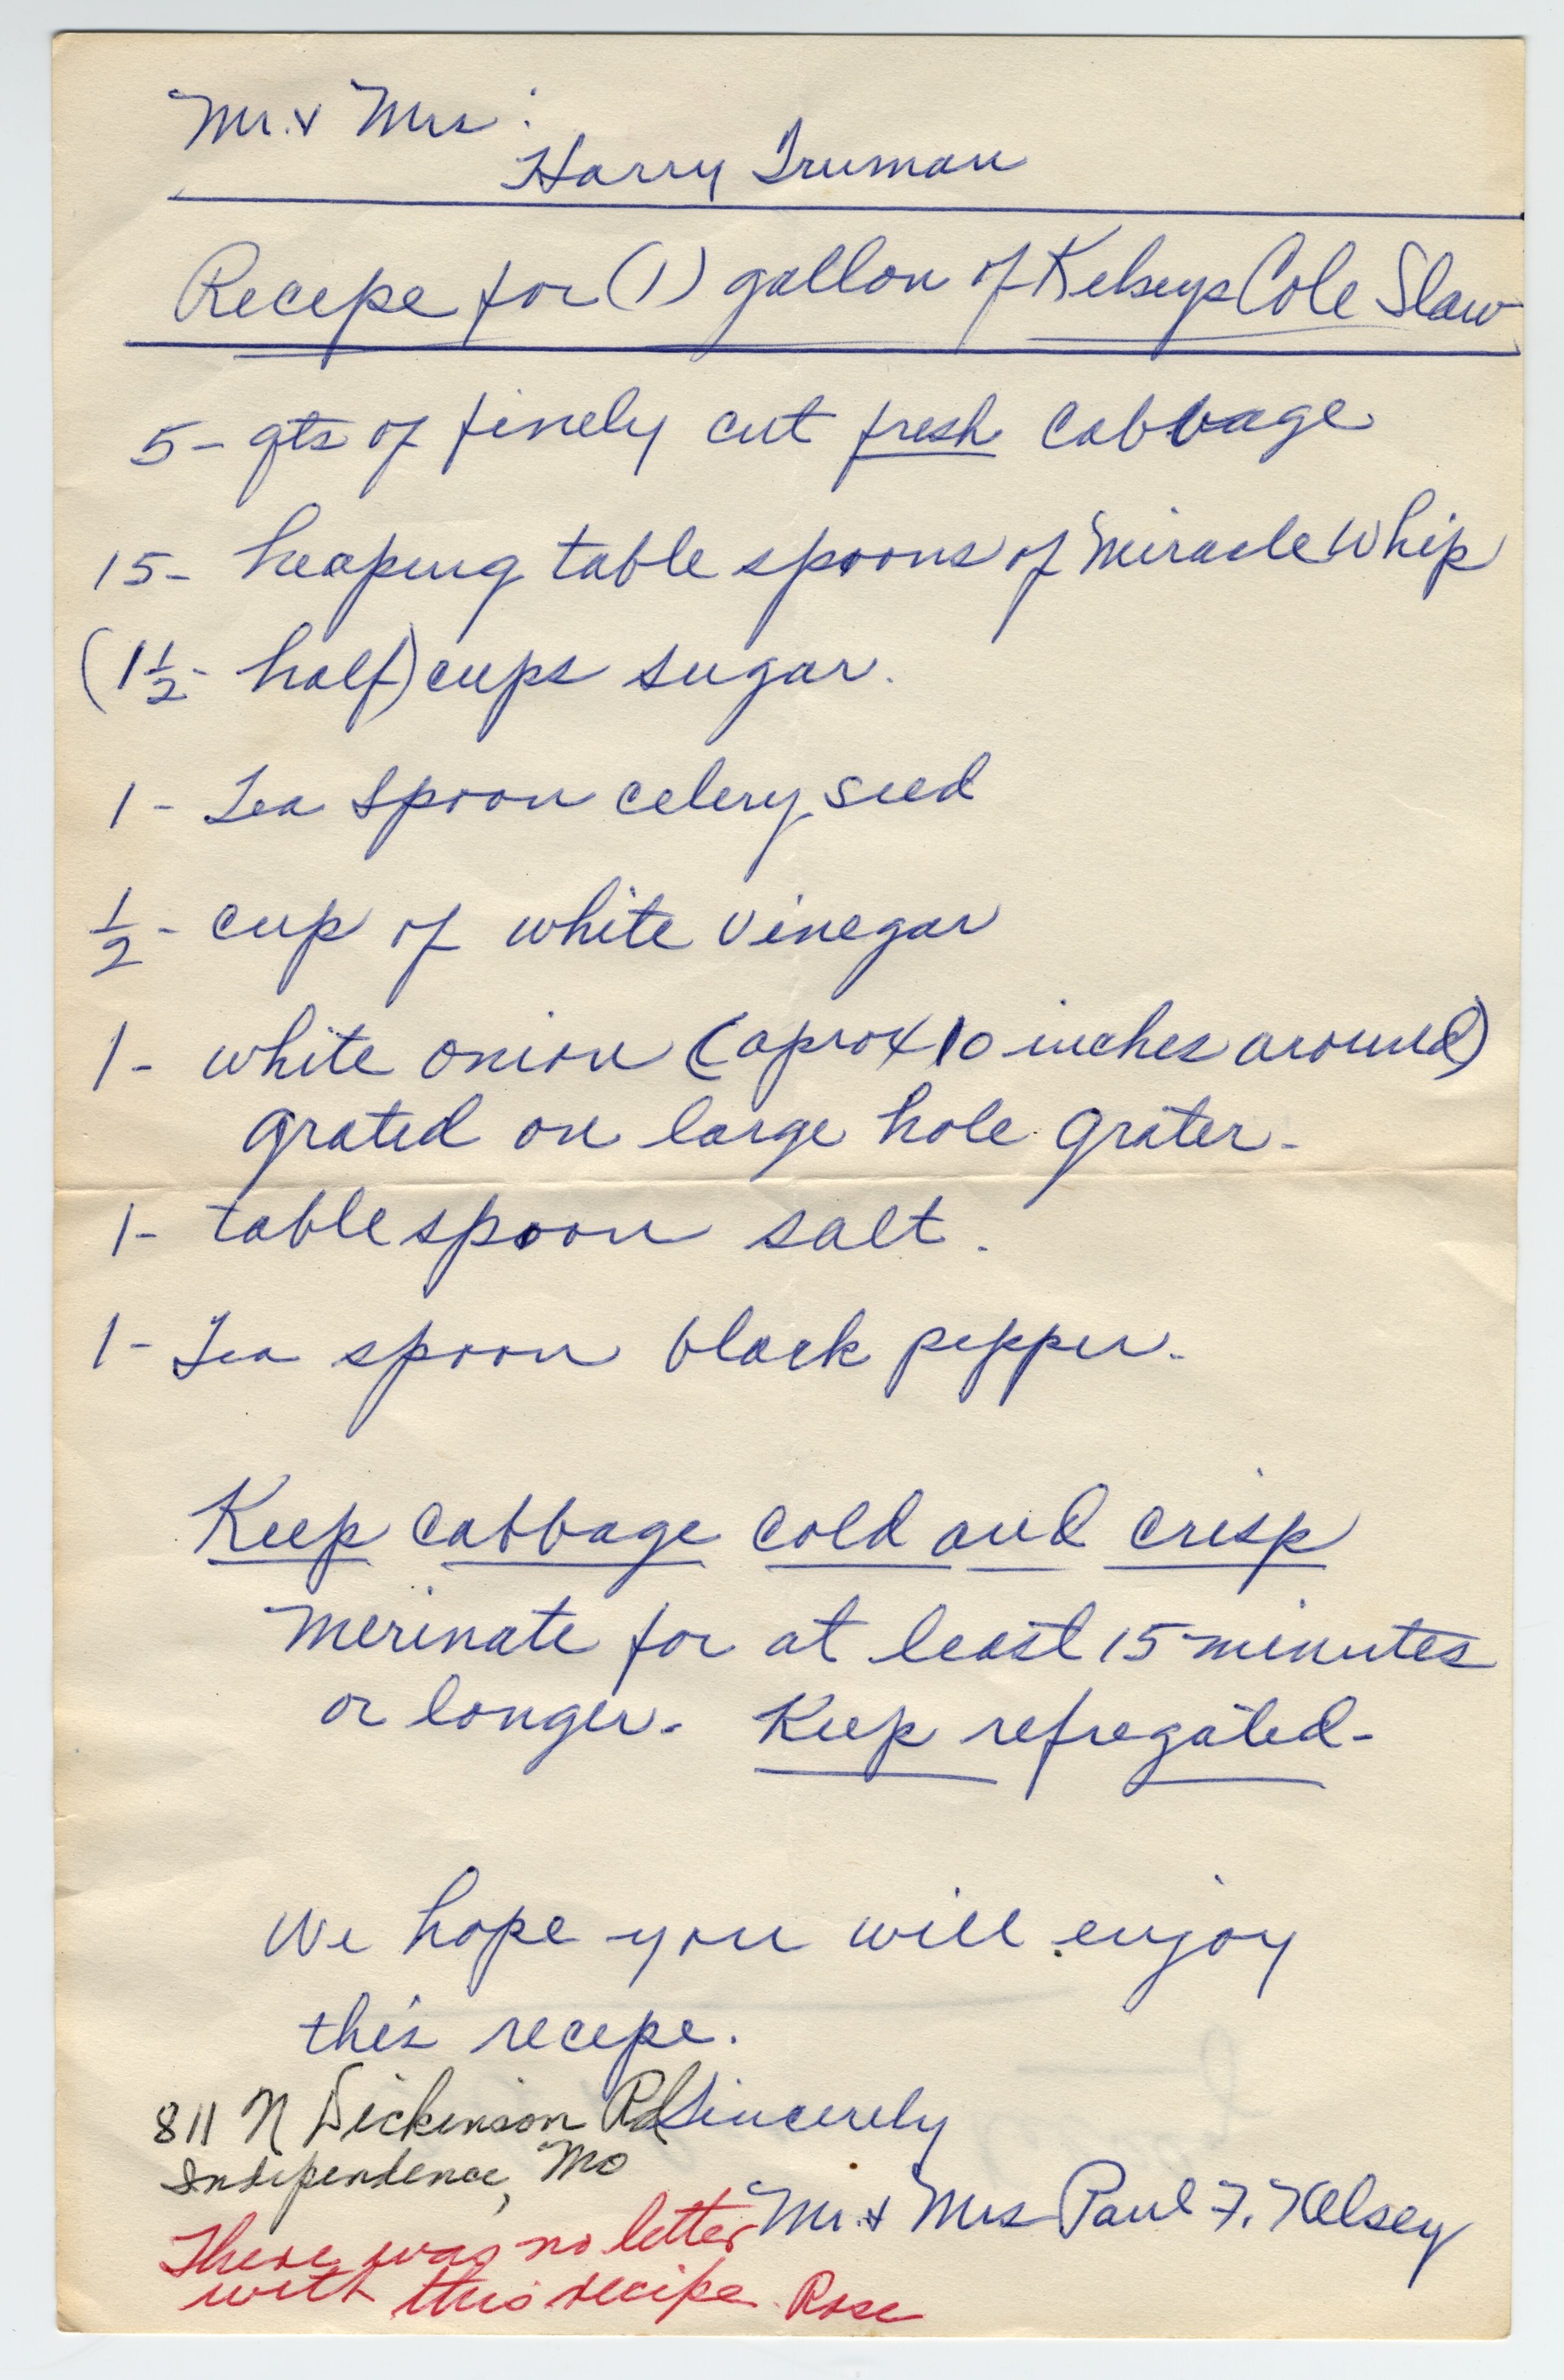 Mr. & Mrs:
Harry Truman
Recepe for (1) gallon of Kelseys Cole Slaw
5- qts of finely cut fresh cabbage
15- heaping table spoons of Miracle Whip
(1 1/2- half) cups sugar.
1- Tea spoon celery seed
1/2- cup of white vinegar
1- white onion (aprox 10 inches around)
grated on large hole grater-
1- tablespoon salt.
1- Tea spoon black pepper.
Keep cabbage cold and crisp
Merinate for at least 15 minutes
or longer. Keep refregated-
We hope you will enjoy
this recepe.
811 N Dickinson Rd Sincerely
Independence, Mo
Mr. & Mrs Paul F. Kelsey
There was no letter
with this recipe. Rose